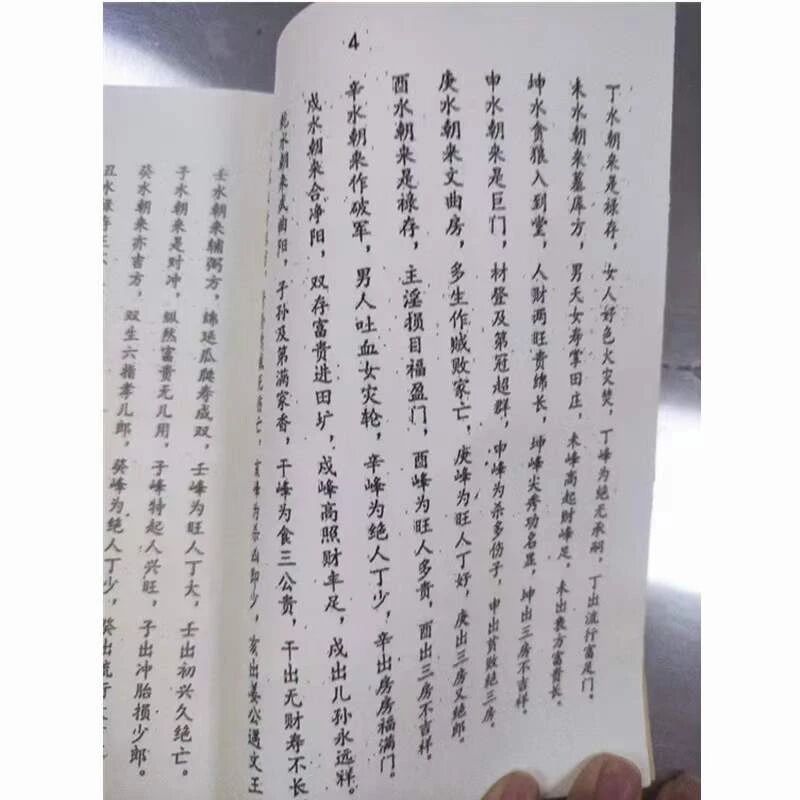 4
丁水朝来是禄存，女人好色火灾焚，丁峰为绝无承嗣，丁出流行富足门。
未水朝来墓库方，男夭女寿掌田庄，未峰高起财峰足，未出丧方富贵长。
坤水贪狼入到堂，人财两旺贵绵长，坤峰尖秀功名显，坤出三房不吉祥。
申水朝来是巨门，材登及第冠超群，申峰为杀多伤子，申出贫败绝三房。
庚水朝来文曲房，多生作贼败家亡，庚峰为旺人丁好，庚出三房又绝郎。
酉水朝来是禄存，主淫损目福盈门，酉峰为旺人多贵，酉出三房不吉祥。
辛水朝来作破军，男人吐血女灾轮，辛峰为绝人丁少，辛出房房福满门。
戌水朝来合净阳，双存富贵进田圹，戌峰高照财年足，戌出儿孙永远祥。
乾水朝来武曲阳，子孙及第满家香，干峰为食三公贵，干出无财寿不长
亥峰为杀凶郎少，亥出姜公遇文王
壬水朝来辅弼方，绵延瓜瓞寿成双，壬峰为旺人丁大，壬出初兴久绝亡。
子水朝来是对冲，纵然富贵无儿用，子峰特起人兴旺，子出冲胎损少郎。
癸水朝来亦吉方，双生六指孝儿郎，癸峰为绝人丁少，癸出流行
丑水